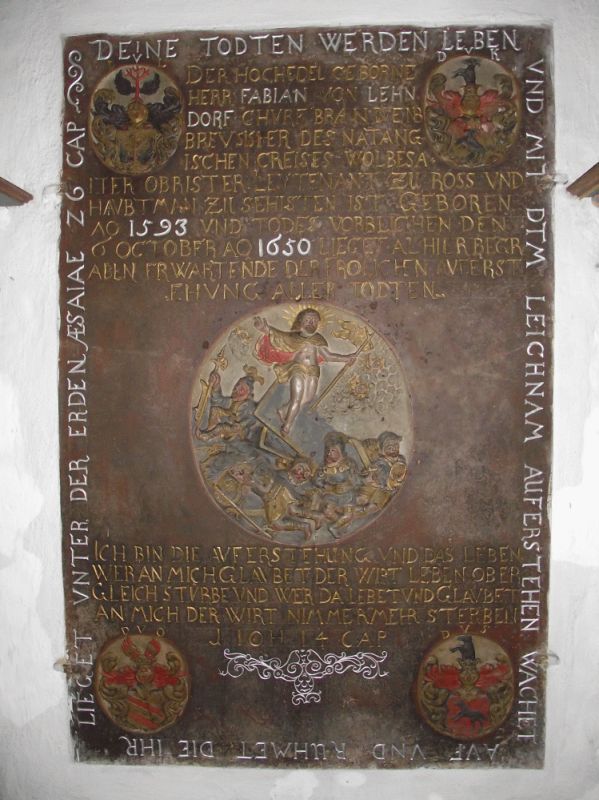 DEINE TODTEN WERDEN LEBEN
VND MIT DEM LEICHNAM AUFERSTEHEN WACHET
AUF VND RUHMET DIE IHR
LIEGET VNTER DER ERDEN ÆSAIAE 26 CAP
DER HOCHEDEL GEBORNE
HERR FABIAN VON LEHN
DORF CHURF BRANDENB
DES NATANG
ISCHEN CREISES WOLBESA
ITER OBRISTER LEUTENANT ZU ROSS VND
HAUBTMAN ZU SEHSTEN IST GEBOREN
AO 1593 VND TODES VORBLICHEN DEN
6 OCTOBER AO 1650 LIEGET ALHIER BEGR
ABEN ERWARTENDE DER FROLICHEN AUFERST
EHUNG ALLER TODTEN
ICH BIN DIE AUFERSTEHUNG VND DAS LEBEN
WER AN MICH GLAUBET DER WIRT LEBEN OBER
GLEICH STURBE VND WER DA LEBET VND GLAUBET
AN MICH DER WIRT NIMMERMEHR STERBEN
IOH 14 CAP